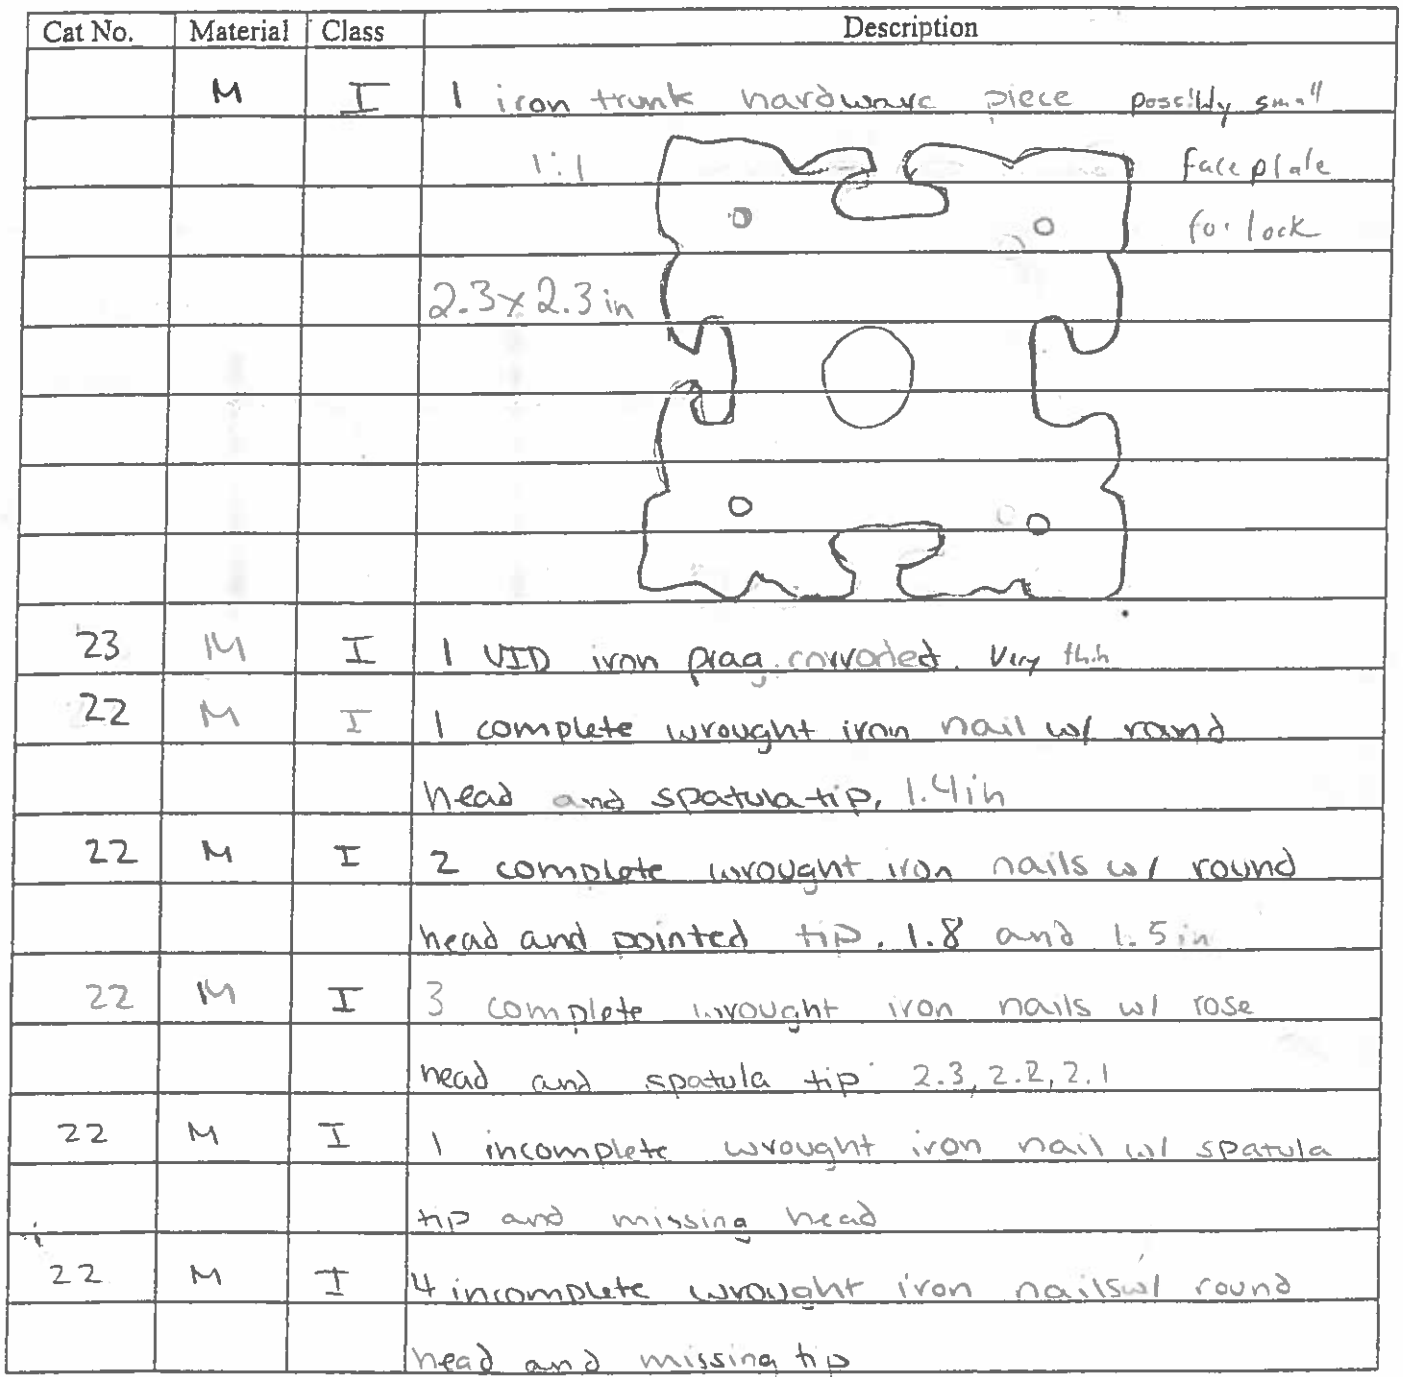 Cat No. Material Class Description
M I 1 iron trunk hardware piece possibly small
1:1 faceplate
for lock
2.3 x 2.3 in
23 M I 1 UID iron frag. corroded. Very thin
22 M I 1 complete wrought iron nail w/ round
head and spatula tip, 1.4in
22 M I 2 complete wrought iron nails w/ round
head and pointed tip. 1.8 and 1.5in
22 M I 3 complete wrought iron nails w/ rose
head and spatula tip 2.3, 2.2, 2.1
22 M I 1 incomplete wrought iron nail w/ spatula
tip and missing head
22 M I 4 incomplete wrought iron nails w/ round
head and missing tip